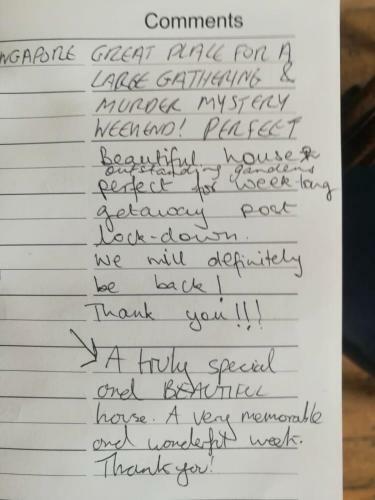 Comments
NGAPORE GREAT PLACE FOR A
LARGE GATHERING &
MURDER MYSTERY
WEEKEND! PERFECT
Beautiful house &
outstanding gardens
perfect for week-long
getaway post
lock-down.
We will definitely
be back!
Thank you!!!
A truly special
and BEAUTIFUL
house. A very memorable
and wonderful week.
Thank you!